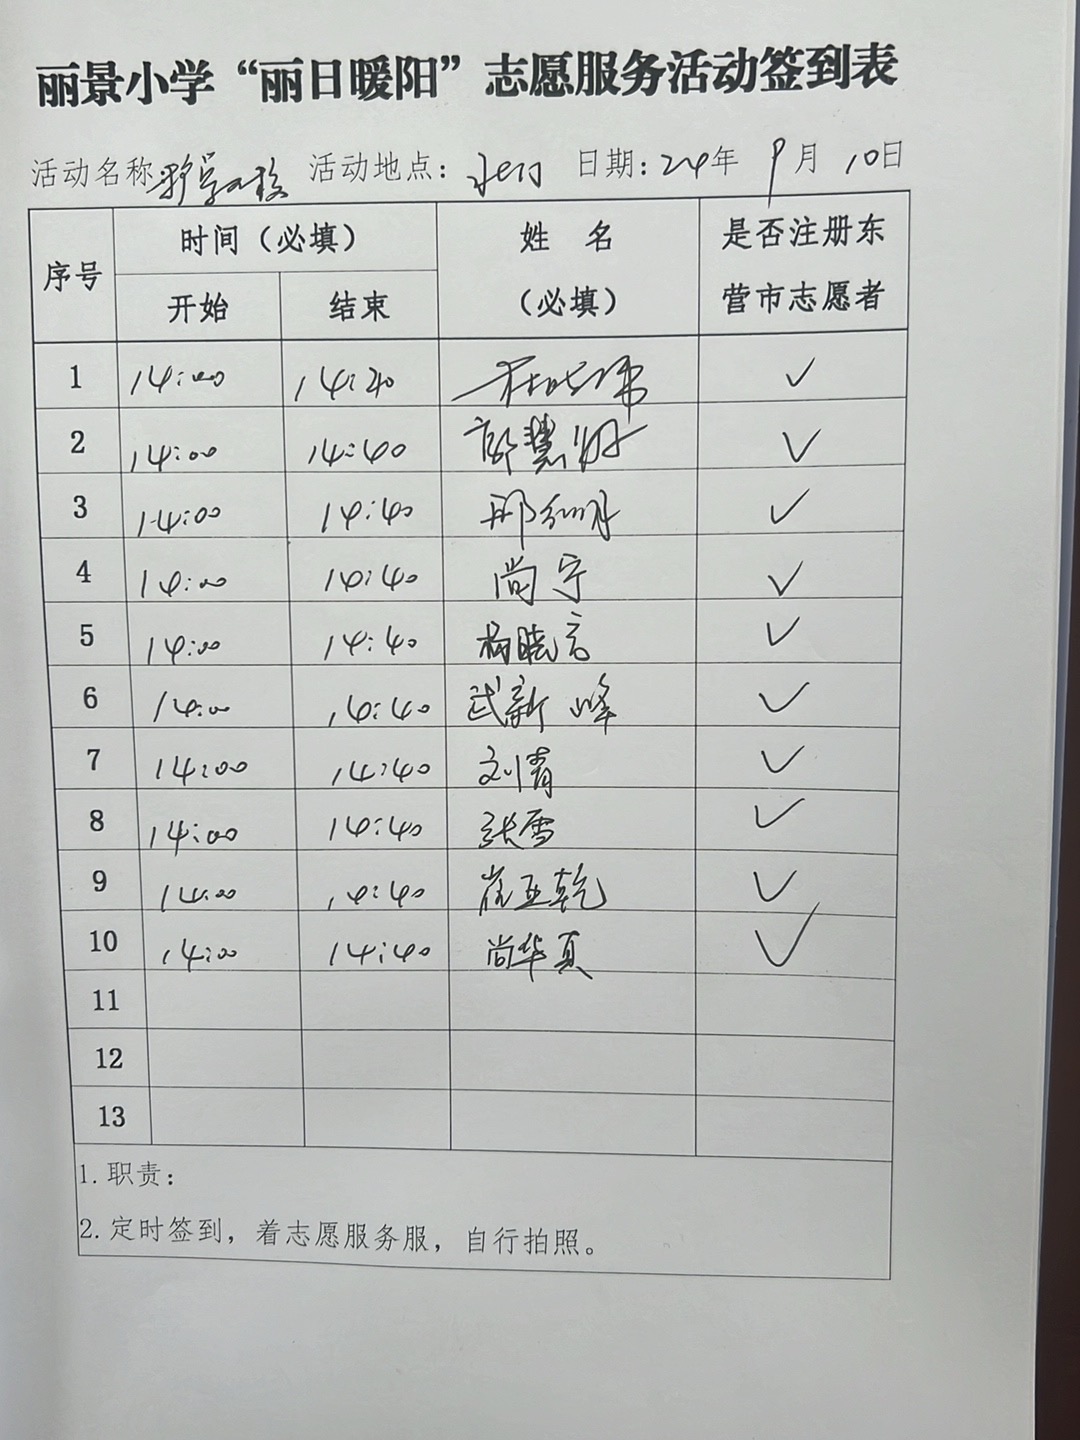 丽景小学“丽日暖阳”志愿服务活动签到表
活动名称 活动地点： 日期：24年 9月 10日
序号 时间（必填） 姓 名（必填） 是否注册东营市志愿者
开始 结束
1 14:00 14:20 ✓
2 14:00 14:40 郭慧娟 ✓
3 14:00 14:40 ✓
4 14:00 14:40 尚宁 ✓
5 14:00 14:40 杨晓言 ✓
6 14:00 14:40 武新峰 ✓
7 14:00 14:40 刘青 ✓
8 14:00 14:40 张雪 ✓
9 14:00 14:40 崔亚乾 ✓
10 14:00 14:40 尚华真 ✓
11
12
13
1.职责：
2.定时签到，着志愿服务服，自行拍照。